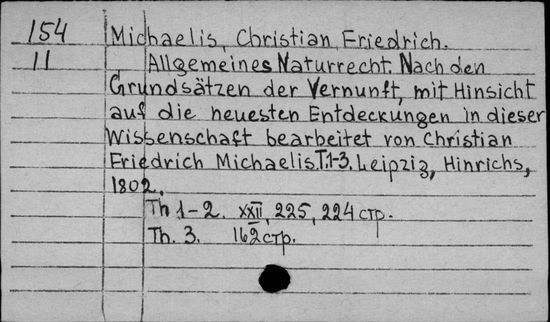 154 Michaelis, Christian Friedrich.
11 Allgemeines Naturrecht. Nach den
Grundsätzen der Vernunft, mit Hinsicht
auf die neuesten Entdeckungen in dieser
Wissenschaft bearbeitet von Christian
Friedrich Michaelis. T.1-3. Leipzig, Hinrichs,
1802.
Th 1-2. XXII, 225, 224 стр.
Th. 3. 162 стр.